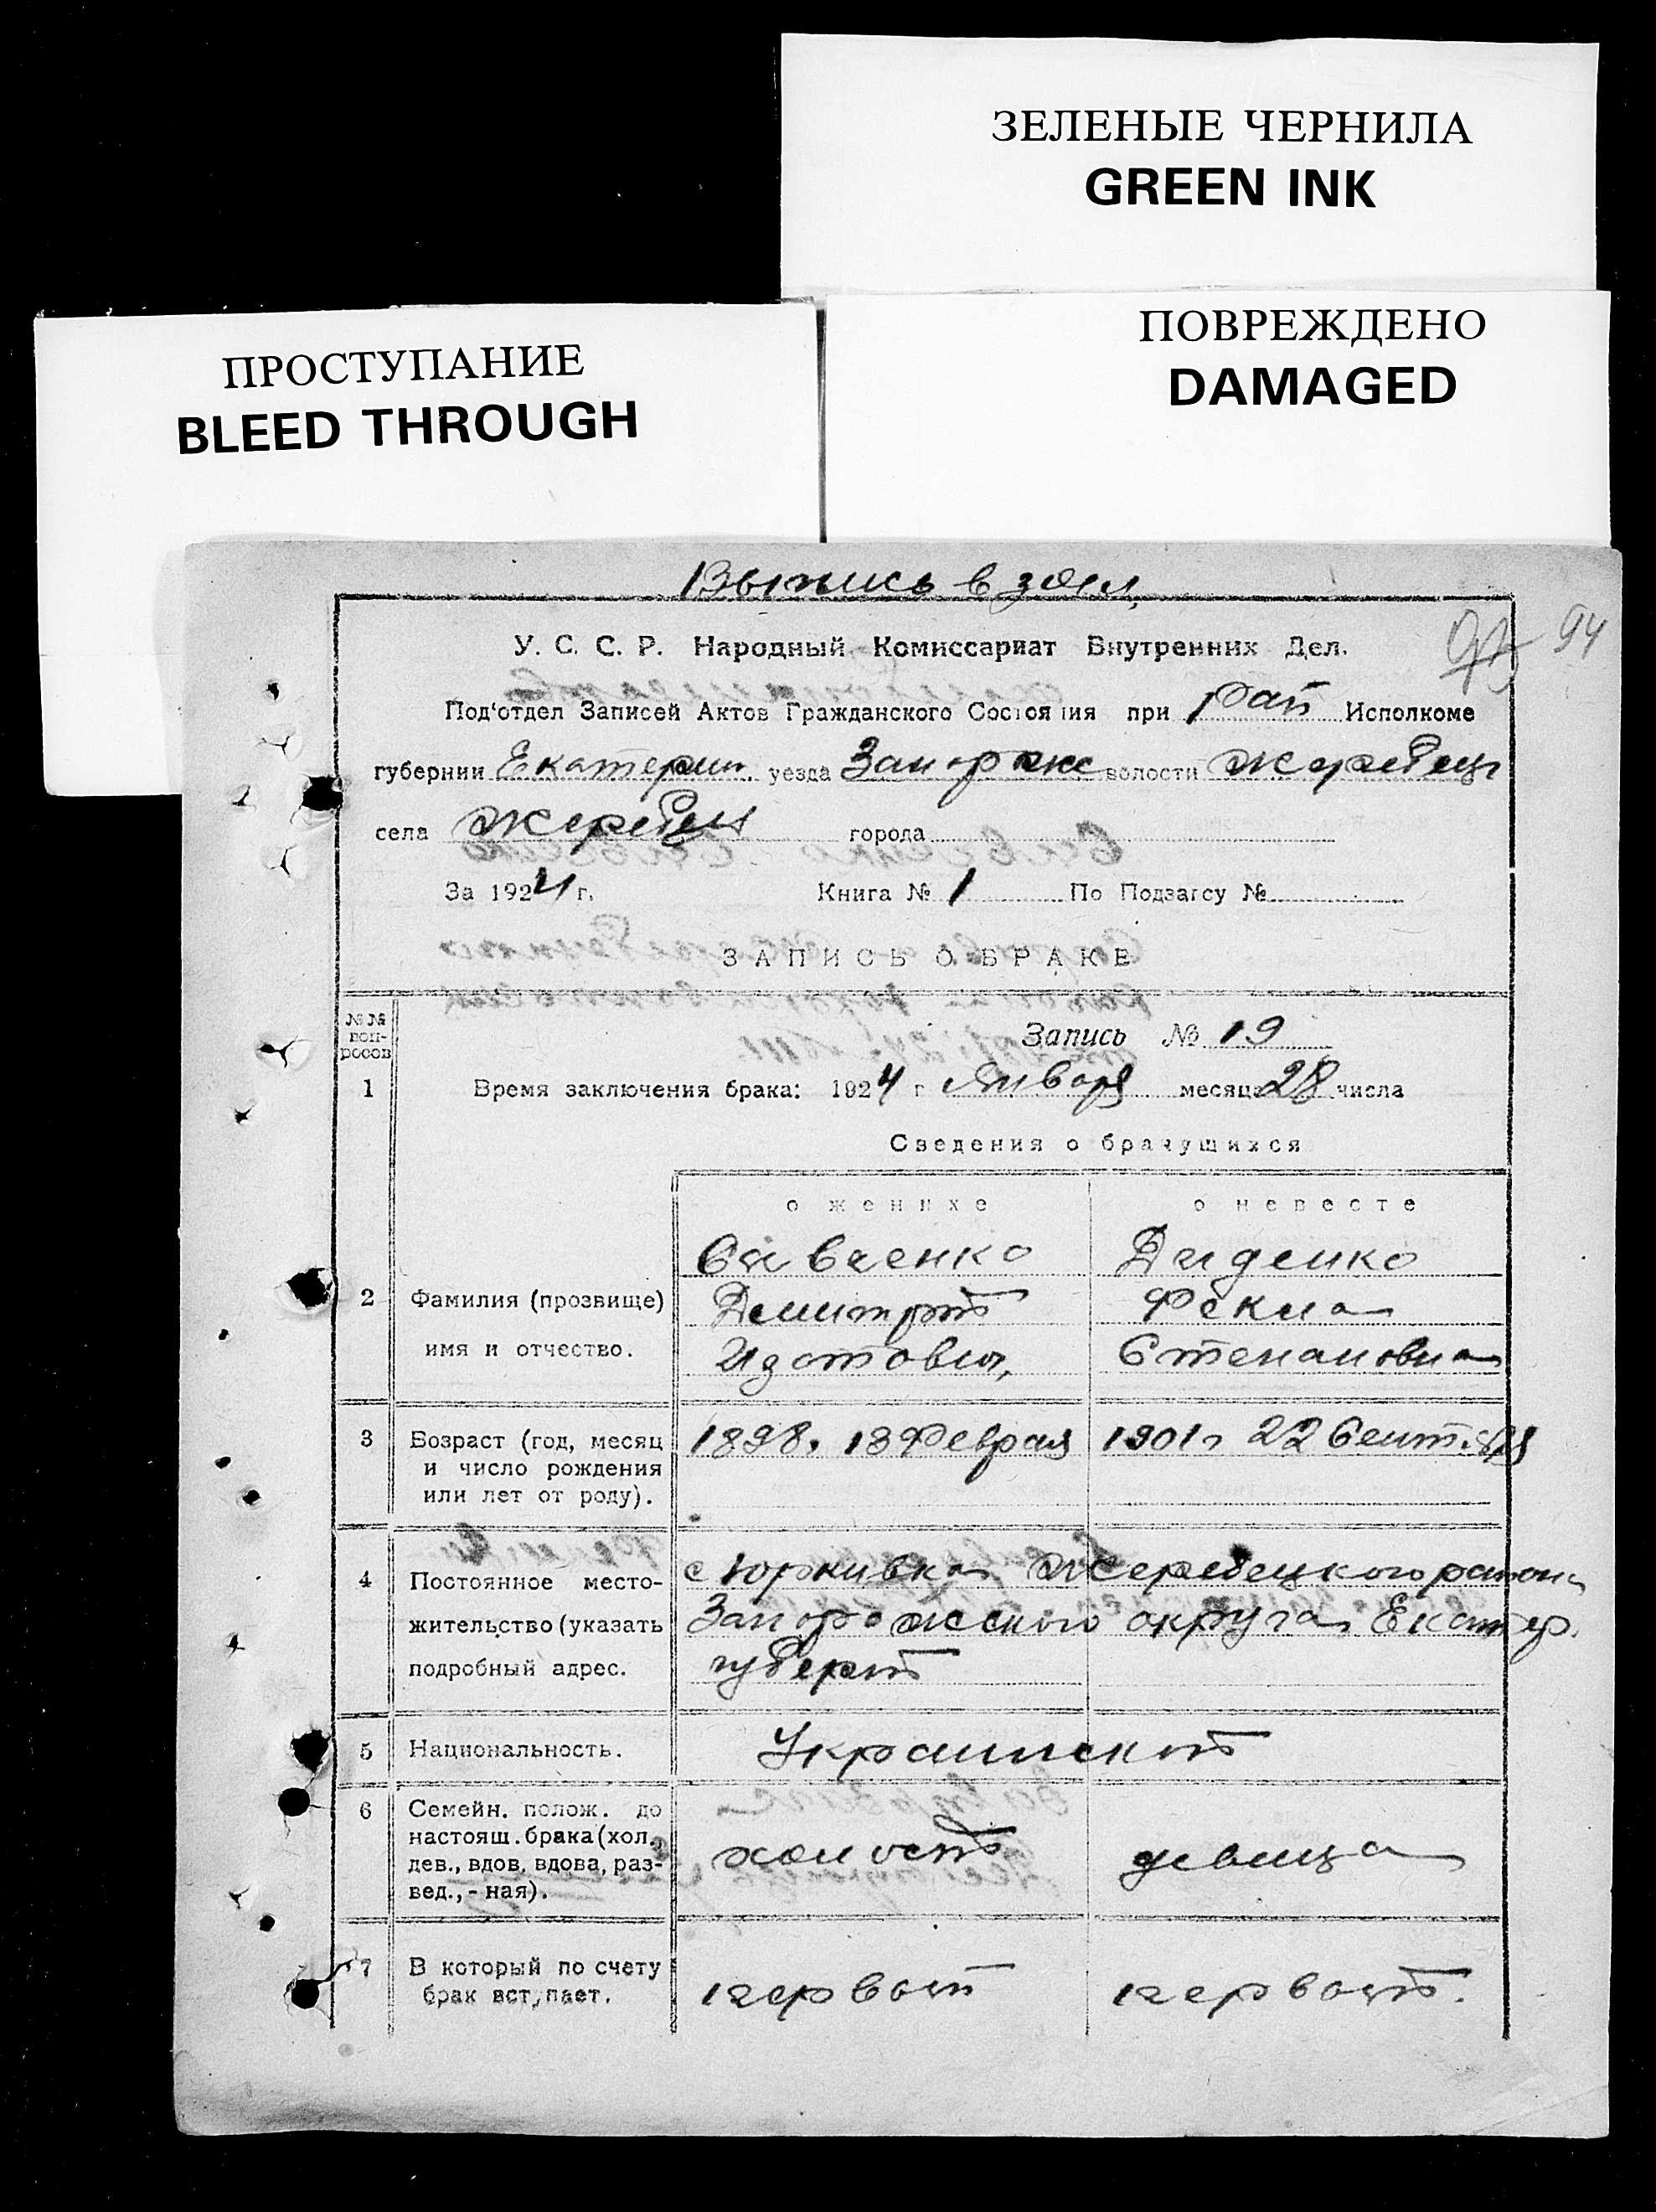 ЗЕЛЕНЫЕ ЧЕРНИЛА
GREEN INK
ПОВРЕЖДЕНО
DAMAGED
ПРОСТУПАНИЕ
BLEED THROUGH
Выпись в
94
У. С. С. Р. Народный Комиссариат Внутренних Дел.
Под'отдел Записей Актов Гражданского Состояния при Рай Исполкоме
губернии Екатерин уезда Запорож волости Жеребец
села Жеребец города
За 1924 г. Книга № 1 По Подзагсу №
ЗАПИСЬ О БРАКЕ
№№ воп-
росов
Запись № 19
1 Время заключения брака: 1924 г Января месяца 28 числа
Сведения о брачущихся
о женихе о невесте
Савченко Диденко
2 Фамилия (прозвище) Дмитрий Фекла
имя и отчество. Изотович Степановна
3 Возраст (год, месяц 1898. 13 Февраля 1901 г 22 Сентября
и число рождения
или лет от роду).
4 Постоянное место- с Юркивка Жеребецкого района
жительство (указать Запорожского округа Екатер.
подробный адрес. губерний
5 Национальность. Украинской
6 Семейн. полож. до
настоящ. брака (хол.,
дев., вдов, вдова, раз- холост девица
вед., - ная).
7 В который по счету
брак вступает. первый первый.